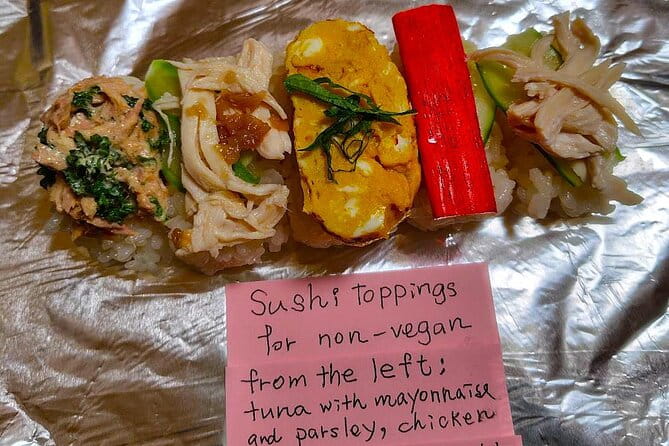 Sushi toppings
for non-vegan
from the left:
tuna with mayonnaise
and parsley, chicken